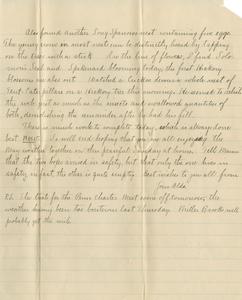 Also found another Song Sparrows nest containing five eggs.
The young crows in most nests can be distinctly heard by tapping
on the tree with a stick. In the line of flowers, I find Solo-
mon's Seal and Speedwell blooming today, the first Hickory
blossoms also out. Watched a Cuckoo demolish a whole nest of
Tent Caterpillars in a Hickory tree this morning. He seemed to relish
the wile just as much as the insects and swallowed quantities of
both, demolishing the remainder after he had his fill.
There is much work to complete today, which is always done
best Now. So will end hoping that you all enjoy the
May weather together on this peaceful Sunday at home. Tell Mama
that the two boxes arrived in safety, but that only the one lives in
safety, in fact the other is quite empty. Best wishes to you all
from Aldo
P.S. The trot for the Penn Charter Meet came off tomorrow, the
weather having been too boisterous last Thursday. Miller Brooks will
probably get the mile.